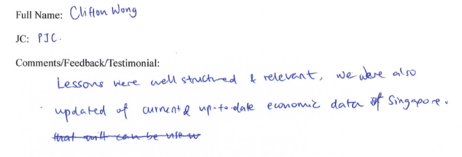 Full Name: Clifton Wong
JC: PJC.
Comments/Feedback/Testimonial:
Lessons were well structured & relevant, we were also
updated of current & up-to-date economic data of Singapore.
that can be use